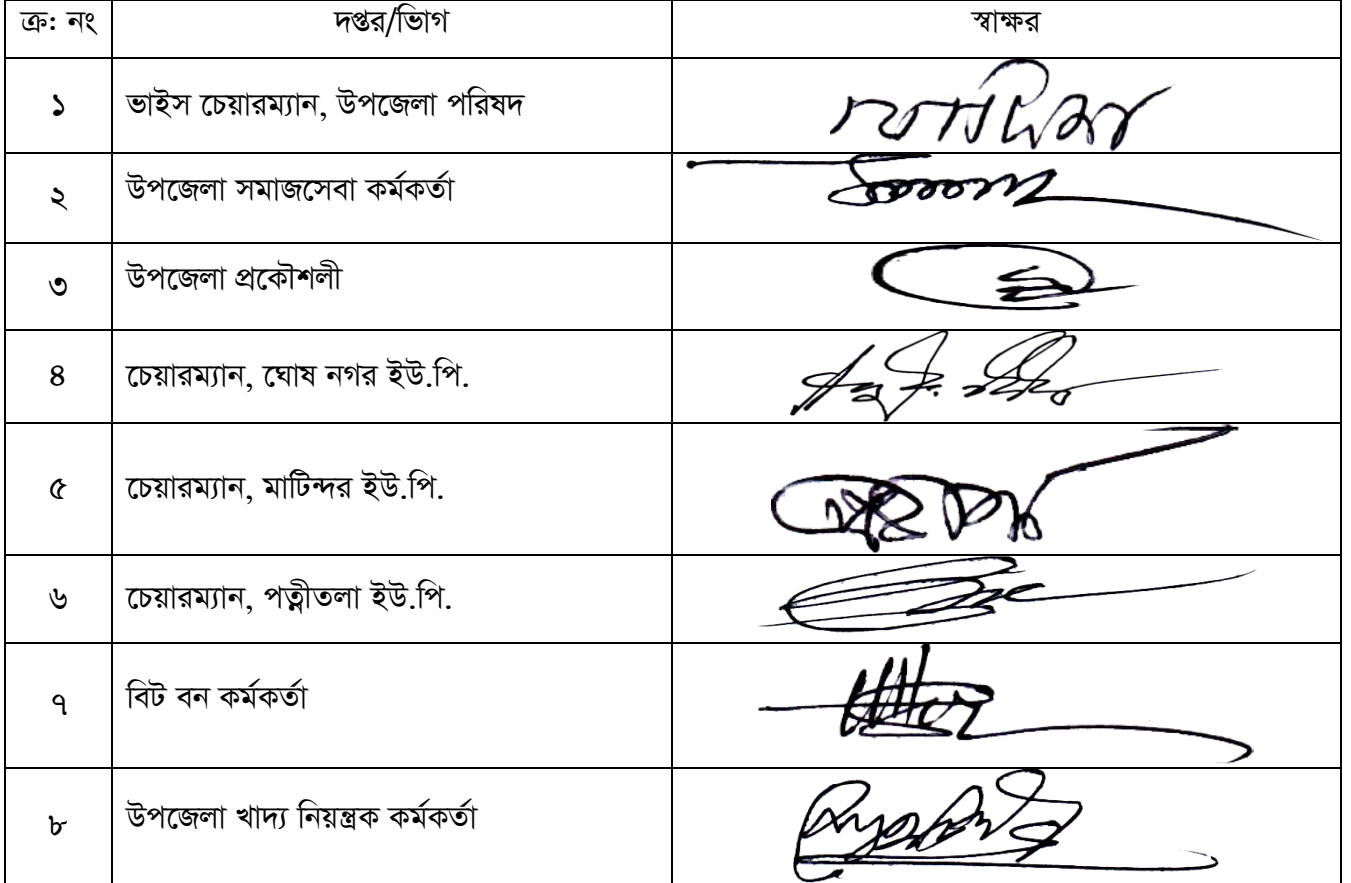 ক্র: নং দপ্তর/ভিাগ স্বাক্ষর
১ ভাইস চেয়ারম্যান, উপজেলা পরিষদ
২ উপজেলা সমাজসেবা কর্মকর্তা
৩ উপজেলা প্রকৌশলী
৪ চেয়ারম্যান, ঘোষ নগর ইউ.পি.
৫ চেয়ারম্যান, মাটিন্দর ইউ.পি.
৬ চেয়ারম্যান, পত্নীতলা ইউ.পি.
৭ বিট বন কর্মকর্তা
৮ উপজেলা খাদ্য নিয়ন্ত্রক কর্মকর্তা